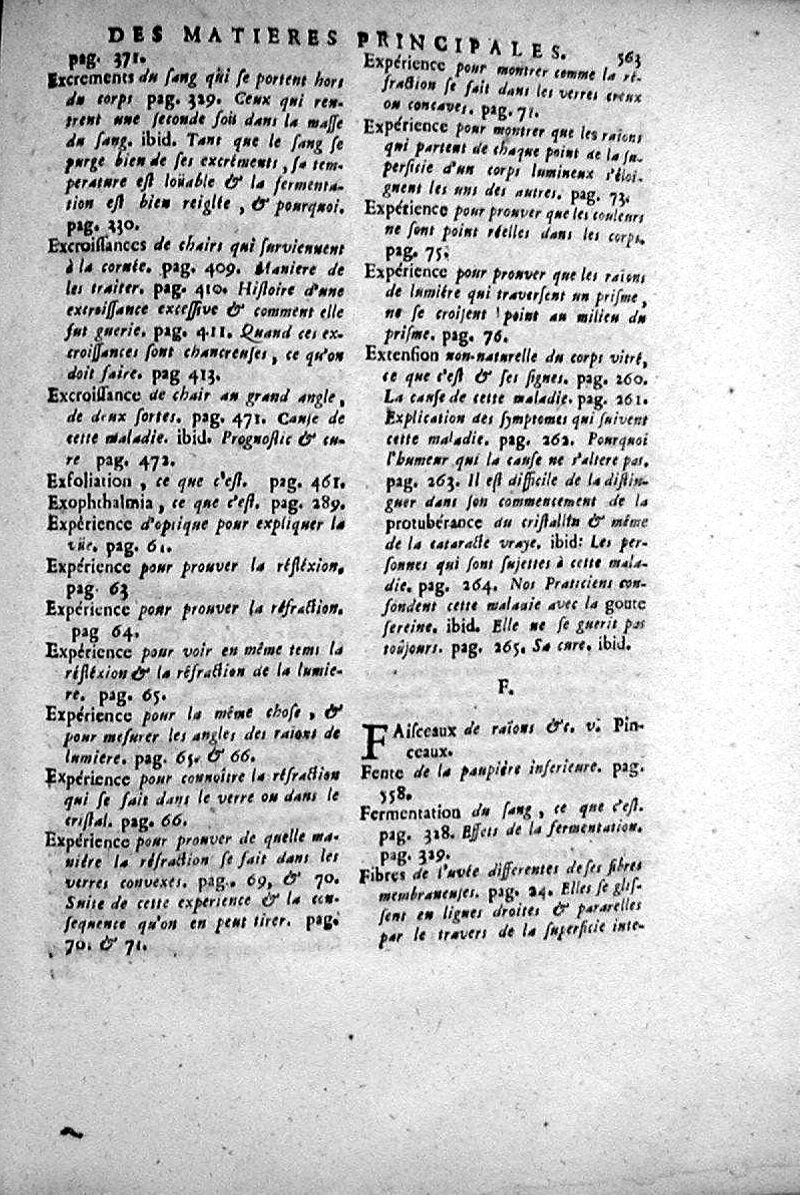 DES MATIERES PRINCIPALES. 563
pag. 371.
Excrements du sang qui se portent hors
du corps pag. 329. Ceux qui ren-
trent une seconde fois dans la masse
du sang. ibid. Tant que le sang se
purge bien de ses excréments, sa tem-
perature est loüable & la fermenta-
tion est bien reiglée, & pourquoi.
pag. 330.
Excroissances de chairs qui surviennent
à la cornée. pag. 409. Maniere de
les traiter. pag. 410. Histoire d'une
excroissance excessive & comment elle
fut guerie. pag. 411. Quand ces ex-
croissances sont chancreuses, ce qu'on
doit faire. pag 413.
Excroissance de chair au grand angle,
de deux sortes. pag. 471. Cause de
cette maladie. ibid. Prognostic & cu-
re pag. 472.
Exfoliation, ce que c'est. pag. 461.
Exophthalmia, ce que c'est. pag. 289.
Expérience d'optique pour expliquer la
vüe. pag. 61.
Expérience pour prouver la réfléxion.
pag. 63
Expérience pour prouver la réfraction.
pag 64.
Expérience pour voir en même tems la
réfléxion & la réfraction de la lumie-
re. pag. 65.
Expérience pour la même chose, &
pour mesurer les angles des raions de
lumière. pag. 65. & 66.
Expérience pour connoître la réfraction
qui se fait dans le verre ou dans le
cristal. pag. 66.
Expérience pour prouver de quelle ma-
niére la réfraction se fait dans les
verres convexes. pag. 69, & 70.
Suite de cette expérience & la con-
sequence qu'on en peut tirer. pag.
70. & 71.
Expérience pour montrer comme la ré-
fraction se fait dans les verres creux
ou concaves. pag. 71.
Expérience pour montrer que les raions
qui partent de chaque point de la su-
perficie d'un corps lumineux s'éloi-
gnent les uns des autres. pag. 73.
Expérience pour prouver que les couleurs
ne sont point réelles dans les corps.
pag. 75.
Expérience pour prouver que les raions
de lumiére qui traversent un prisme,
ne se croisent point au milieu du
prisme. pag. 76.
Extension non-naturelle du corps vitré,
ce que c'est & ses signes. pag. 260.
La cause de cette maladie. pag. 261.
Explication des symptomes qui suivent
cette maladie. pag. 262. Pourquoi
l'humeur qui la cause ne s'altere pas.
pag. 263. Il est difficile de la distin-
guer dans son commencement de la
protubérance du cristallin & même
de la cataracte vraye. ibid: Les per-
sonnes qui sont sujettes à cette mala-
die. pag. 264. Nos Praticiens con-
fondent cette maladie avec la goute
sereine. ibid. Elle ne se guerit pas
toûjours. pag. 265. Sa cure. ibid.
F.
FAisceaux de raïons &c. v. Pin-
ceaux.
Fente de la paupière inferieure. pag.
558.
Fermentation du sang, ce que c'est.
pag. 328. Effets de la fermentation.
pag. 329.
Fibres de l'uvée differentes de ses fibres
membraneuses. pag. 24. Elles se glis-
sent en lignes droites & pararelles
par le travers de la superficie inte-